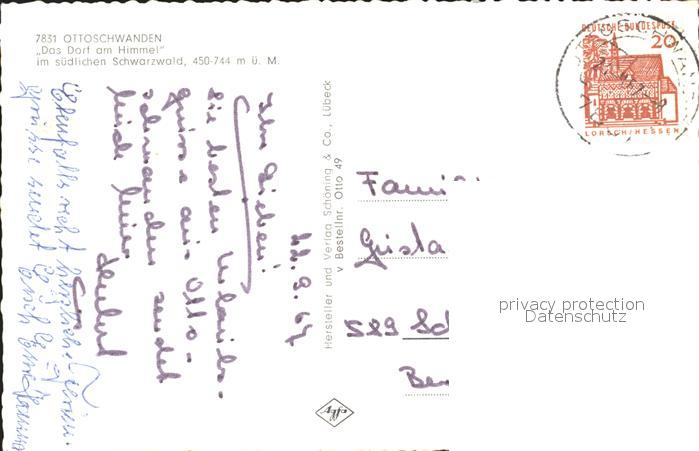 7831 OTTOSCHWANDEN
„Das Dorf am Himmel"
im südlichen Schwarzwald, 450-744 m ü. M.
DEUTSCHE BUNDESPOST
20
LORSCH/HESSEN
22.9.67
Ihr Lieben!
die besten Urlaubs-
grüsse aus Otto-
schwanden sendet
Euch
Ebenfalls recht herzliche Ferien-
grüsse sendet Euch
Hersteller und Verlag Schöning & Co., Lübeck
v Bestellnr. Otto 49
Fami
Gusta
529 Sd
Be
privacy protection
Datenschutz